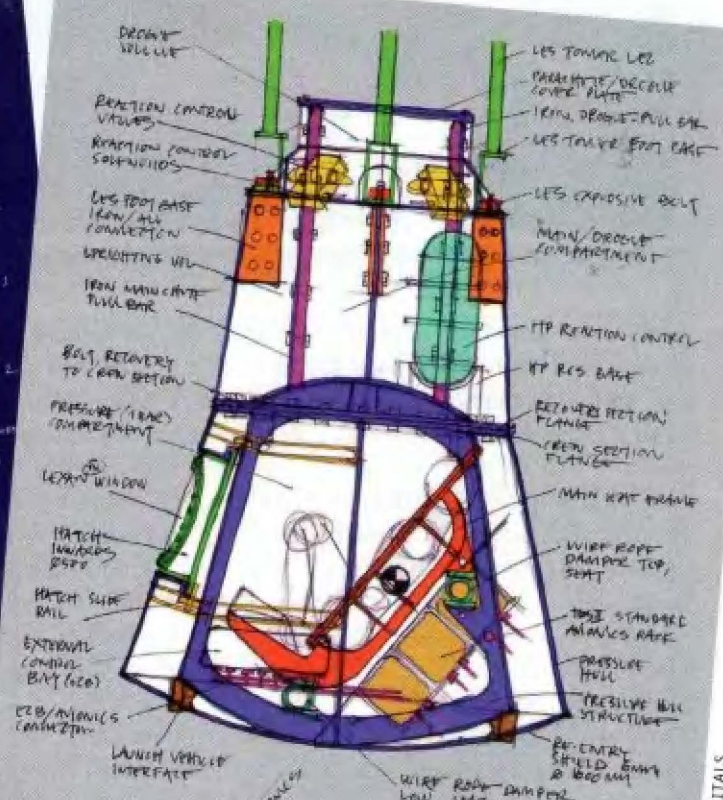 DROGUE
REACTION CONTROL
VALVES
REACTION CONTROL
SOLENOIDS
LES FOOT BASE
IRON/ALL
CONNECTION
UPRIGHTING
IRON MAIN CHUTE
PULL BAR
BOLT, RECOVERY
TO CREW SECTION
PRESSURE
COMPARTMENT
LEXAN WINDOW
HATCH
INWARDS
HATCH SLIDE
RAIL
EXTERNAL
CONTROL
BAY
AVIONICS
LAUNCH VEHICLE
INTERFACE
LES TOWER LEG
PARACHUTE/DROGUE
COVER PLATE
IRON, DROGUE-PULL BAR
LES TOWER FOOT BASE
LES EXPLOSIVE BOLT
MAIN/DROGUE
COMPARTMENT
HP REACTION CONTROL
HP RCS BASE
RECOVERY SECTION
FLANGE
CREW SECTION
FLANGE
MAIN SEAT FRAME
WIRE ROPE
DAMPER TOP,
SEAT
STANDARD
AVIONICS RACK
PRESSURE
HULL
PRESSURE HULL
STRUCTURE
RE-ENTRY
SHIELD
WIRE ROPE DAMPER
1
2